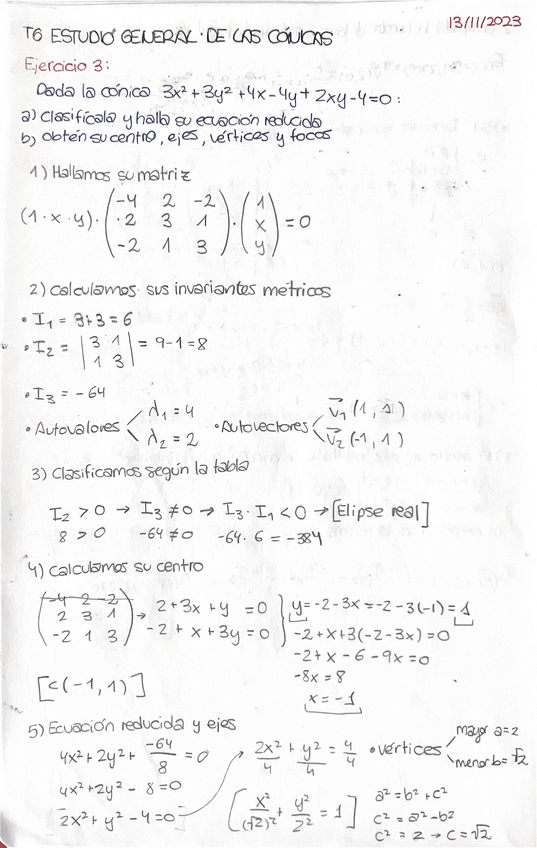 13/11/2023
T6 ESTUDIO GENERAL DE LAS CÓNICAS
Ejercicio 3:
Dada la cónica 3x² + 3y² + 4x - 4y + 2xy - 4 = 0:
a) Clasifícala y halla su ecuación reducida
b) obtén su centro, ejes, vértices y focos
1) Hallamos su matriz
(1 · x · y) · (-4 2 -2 / 2 3 1 / -2 1 3) · (1 / x / y) = 0
2) Calculamos sus invariantes métricos
• I₁ = 3+3 = 6
• I₂ = |3 1 / 1 3| = 9-1 = 8
• I₃ = -64
• Autovalores < λ₁ = 4 / λ₂ = 2 • Autovectores < v₁ (1, 1) / v₂ (-1, 1)
3) Clasificamos según la tabla
I₂ > 0 → I₃ ≠ 0 → I₃ · I₁ < 0 → [Elipse real]
8 > 0 -64 ≠ 0 -64 · 6 = -384
4) Calculamos su centro
(-4 2 -2 / 2 3 1 / -2 1 3) → 2 + 3x + y = 0
-2 + x + 3y = 0
y = -2 - 3x = -2 - 3(-1) = 1
-2 + x + 3(-2 - 3x) = 0
-2 + x - 6 - 9x = 0
-8x = 8
x = -1
[C(-1, 1)]
5) Ecuación reducida y ejes
4x² + 2y² + -64/8 = 0
4x² + 2y² - 8 = 0
2x² + y² - 4 = 0
2x²/4 + y²/4 = 4/4
[x²/(√2)² + y²/2² = 1]
• vértices < mayor a = 2 / menor b = √2
a² = b² + c²
c² = a² - b²
c² = 2 → c = √2